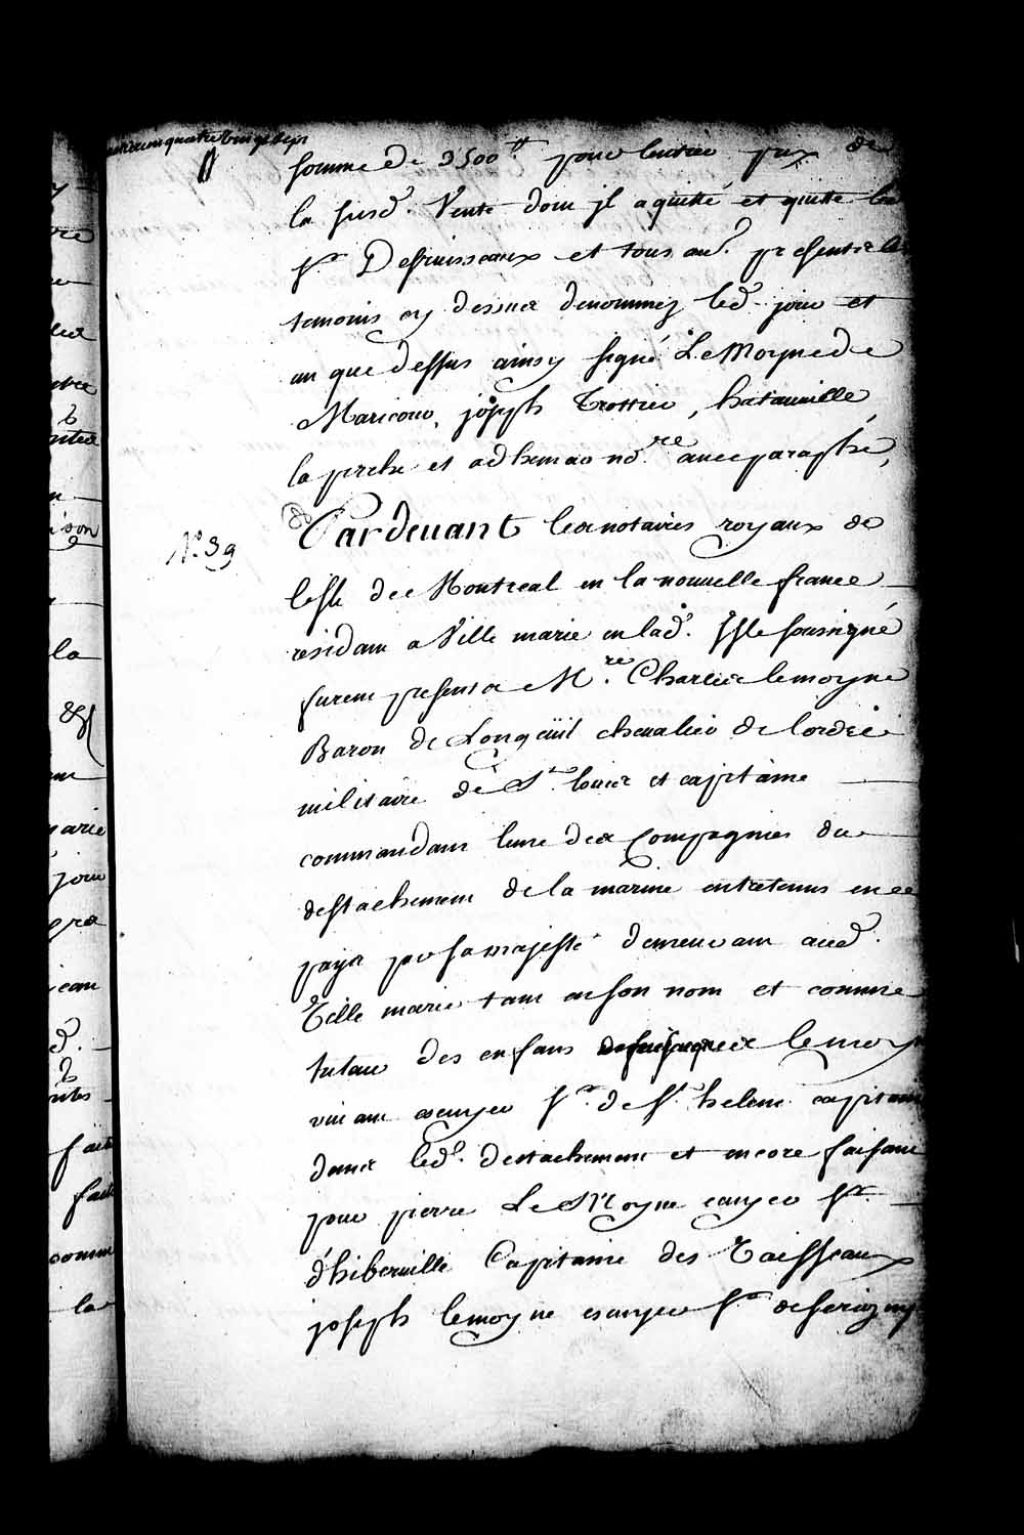 somme de 3500 lt pour lentier prix de
la susd. Vente dont jl a quitté et quitte led
Sr Desruisseaux et tous aud. presente les
temoins cy dessus denommez led. jour et
an que dessus ainsy signé LeMoyne de
Maricour, joseph Trottier, hatanville,
laprerie et adhemar no.re avec paraphe,
N.o 39
Pardevant les notaires royaux de
lisle de Montreal en la nouvelle france
residant a Ville marie en lad. Isle soussigné
furent presents M.re Charles lemoyne
Baron de Longeüil chevalier de lordre
militaire de St. louis et capitaine
commandant lune des Compagnies du
destachement de la marine entretenus en ce
pays par sa majesté demeurant aud.
Ville marie tant en son nom et comme
tuteur des enfans lemoyne
vivant escuyer Sr. de St. helene capitaine
dans led. destachement et encore faisant
pour pierre LeMoyne escuyer Sr.
d'hiberville Capitaine des Vaisseaux
joseph lemoyne escuyer Sr de serigny
ison
la
marie
jour
fait
fait
comme
la